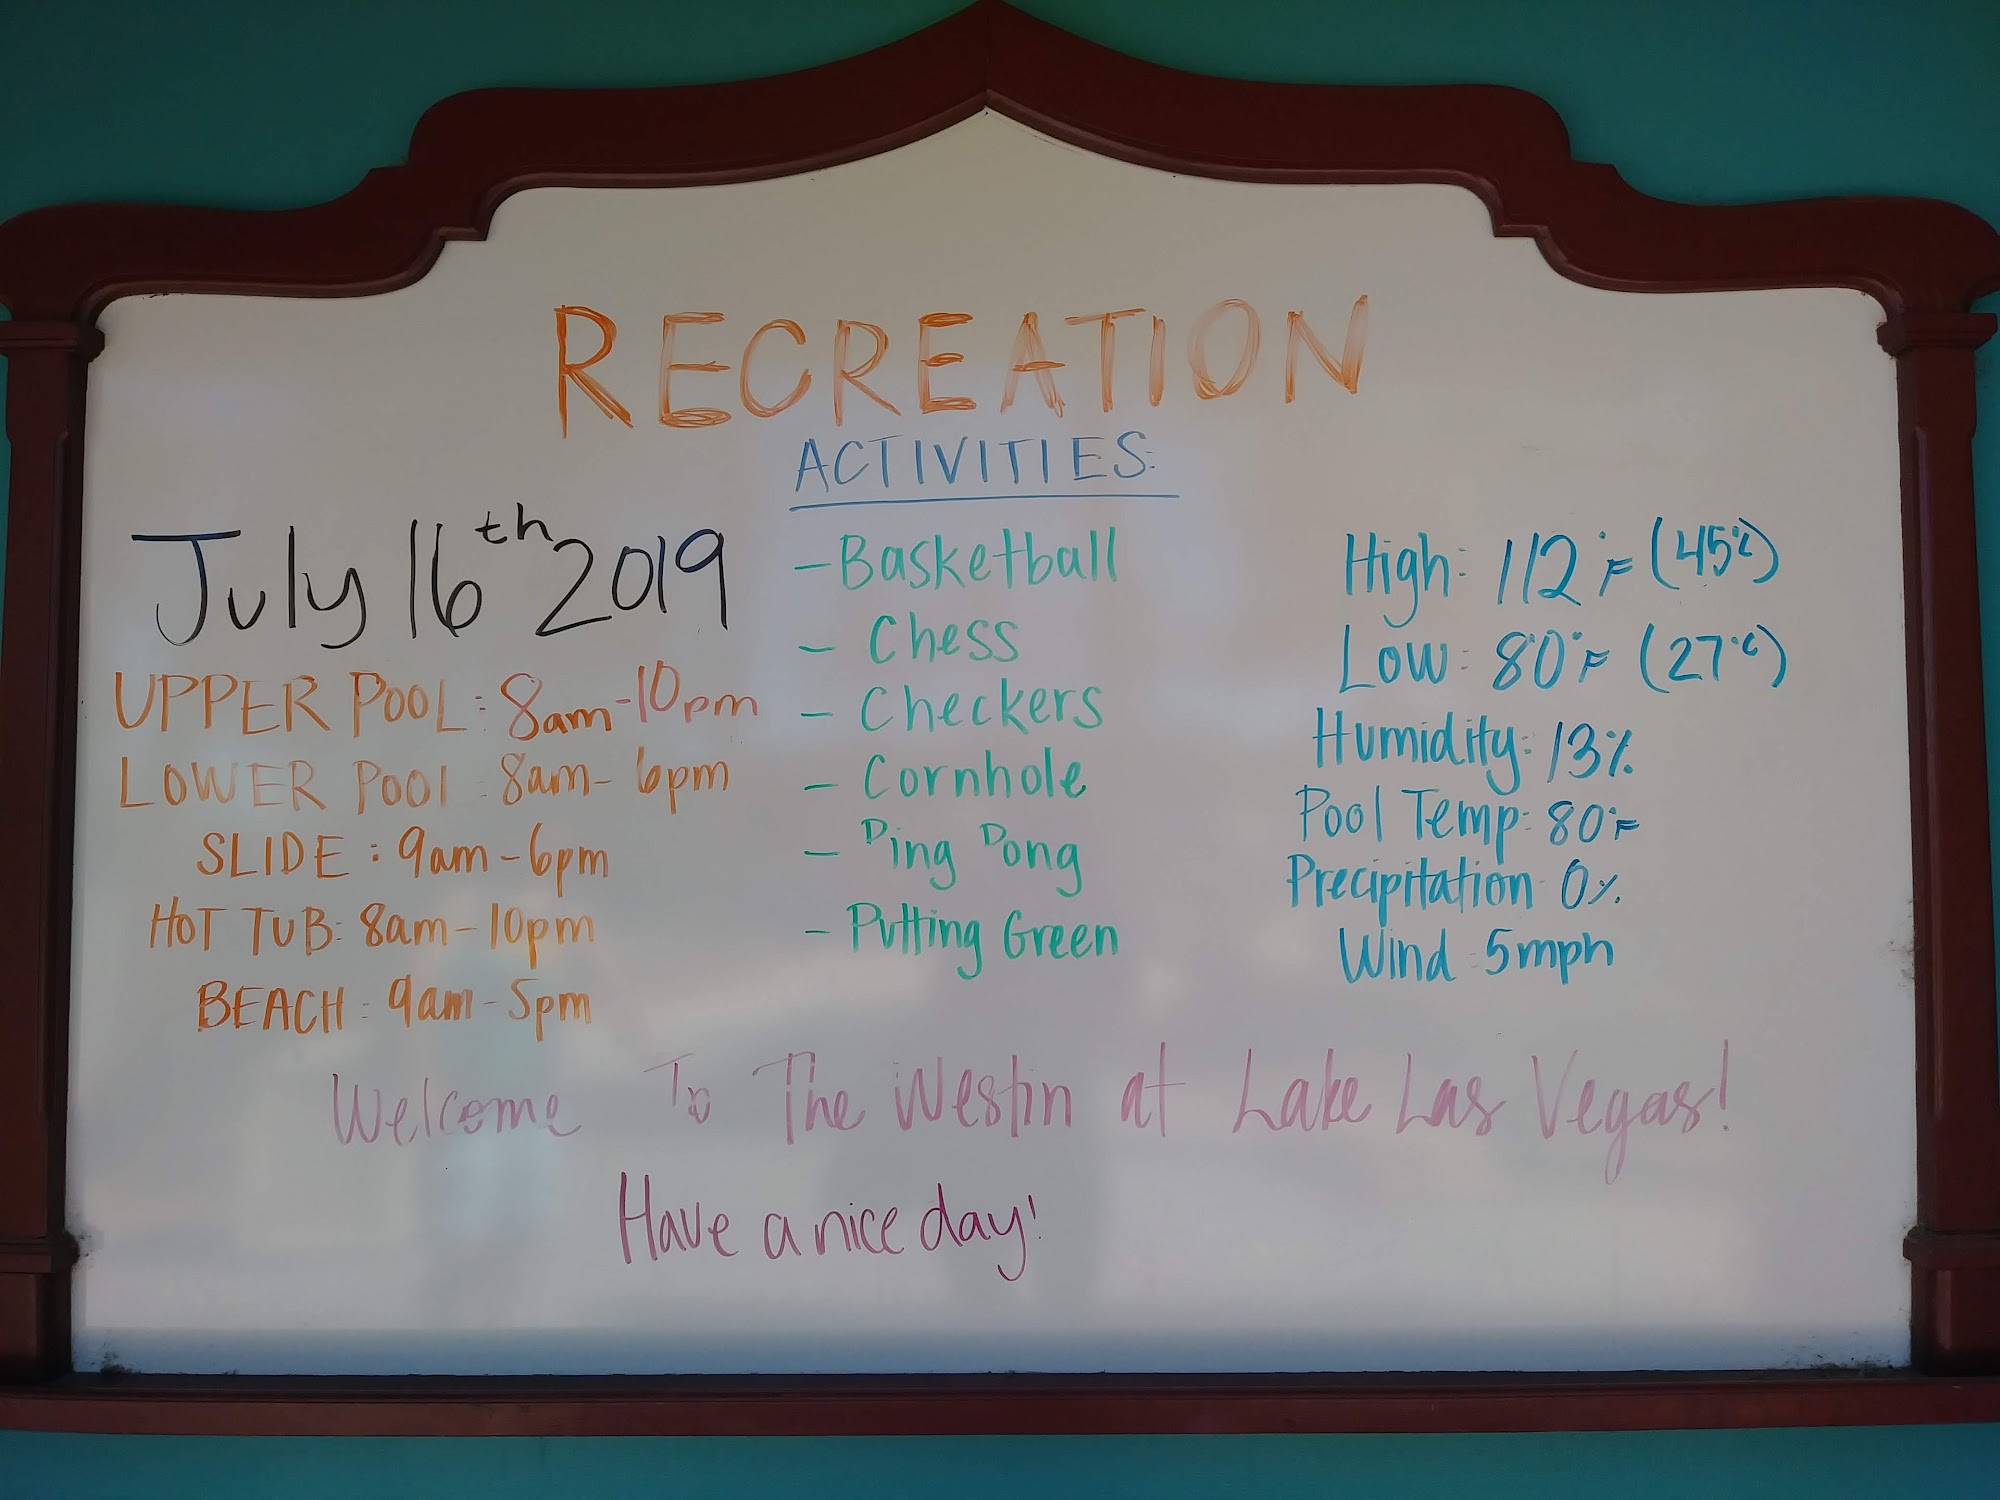 RECREATION
ACTIVITIES:
July 16th 2019
UPPER POOL: 8am-10pm
LOWER POOL: 8am-6pm
SLIDE: 9am-6pm
HOT TUB: 8am-10pm
BEACH: 9am-5pm
- Basketball
- Chess
- Checkers
- Cornhole
- Ping Pong
- Putting Green
High: 112°F (45°C)
Low: 80°F (27°C)
Humidity: 13%
Pool Temp: 80°F
Precipitation: 0%
Wind: 5mph
Welcome To The Westin at Lake Las Vegas!
Have a nice day!